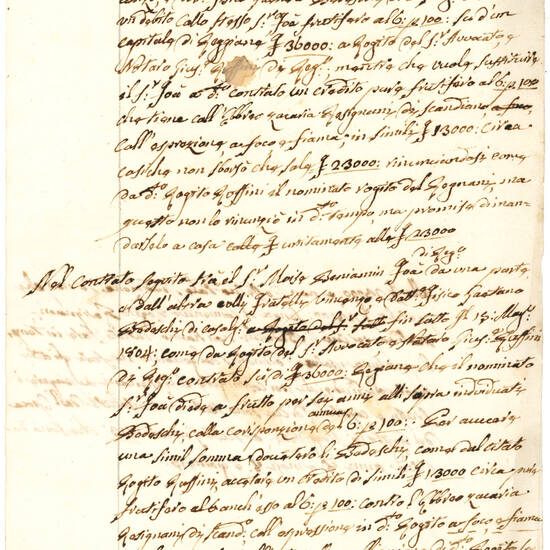 un debito collo stesso S.r Foà fruttifero al 6: p 100: sei d'un
capitale di Reggiane £ 36000: a Rogito del S.r Avvocato, e
Notaro Gius. Ruffini di Reg.o, mentre che vuole sostituire
il S.r Foà a d.o contrato un credito pure fruttifero al 6: p 100
che tiene coll'Ebbreo Zacaria Resignani di Scandiano,
coll'espressione a foco e fiama; in simili £ 13000: Circa
cosiche non sborsò che sole £ 23000: rinunciandosi come
da d.o Rogito Roffini il nominato rogito del Resignani, ma
questo non lo rinunciò in d.o tempo, ma promise di man-
darselo a casa colle £ unitamente alle £ 23000
di Reg.o
Nel Contrato seguito trà il S.r Moise Beniamin Foà da una parte
e dall'altra colli Fratelli Vincenzo e Dott. Fisico Gaetano
Bodeschi di Casolg: fin sotto li 13: Mag.o
1804: come da Rogito del S.r Avvocato e Notaro Gius. Roffini
di Reg.o contratò sei di £ 36000: Regiane che il nominato
S.r Foà diede a frutto per sei anni alli sovra individuati
annua
Bodeschi, colla corisponzione del 6: p 100: Per avere
una simil somma dovettero li Bodeschi, come dal citato
Rogito Ruffini, accettare un credito di simili £ 13000 circa pure
fruttifero al 6: p 100: contro l'Ebbreo Zacaria
Resignani di Scand.o coll'espressione in d.o Rogito a foco e fiama